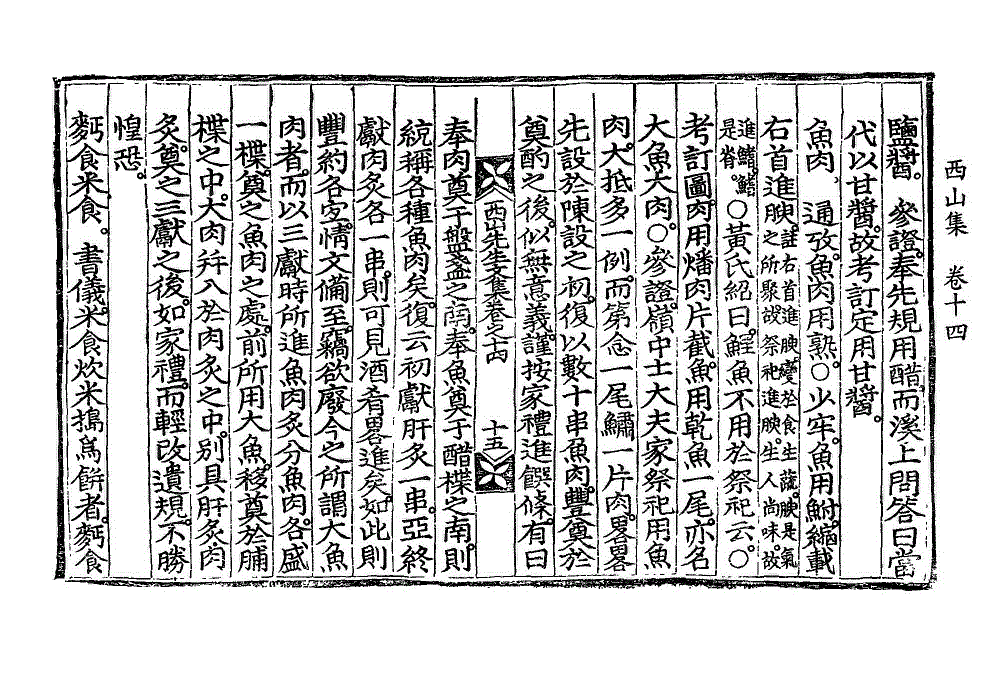 西山集 卷十四
鹽醬。 參證。奉先規用醋。而溪上問答曰當
代以甘醬。故考訂定用甘醬。
魚肉 通攷。魚肉用熟。○少牢。魚用鮒。縮載
右首進腴。註右首進腴。變於食生。疏。腴是氣之所聚。故祭祀進腴。生人尚味。故
進鰭。鰭是脊。○黃氏紹曰。鯉魚不用於祭祀云。○
考訂圖。肉用燔肉片截。魚用乾魚一尾。亦名
大魚大肉。○參證。嶺中士大夫家祭祀用魚
肉。大抵多一例。而第念一尾鱐一片肉。畧畧
先設於陳設之初。復以數十串魚肉。豐奠於
奠酌之後。似無意義。謹按家禮進饌條。有曰
西山先生文集卷之十四 十五
奉肉奠于盤盞之南。奉魚奠于醋楪之南。則
統稱各種魚肉矣。復云初獻肝炙一串。亞終
獻肉炙各一串。則可見酒肴畧進矣。如此則
豐約各宜。情文備至。竊欲廢今之所謂大魚
肉者。而以三獻時所進魚肉炙分魚肉。各盛
一楪。奠之魚肉之處。前所用大魚。移奠於脯
楪之中。大肉幷入於肉炙之中。別具肝炙肉
炙。奠之三獻之後。如家禮。而輕改遺規。不勝
惶恐。
麪食米食。 書儀。米食炊米搗爲餠者。麪食